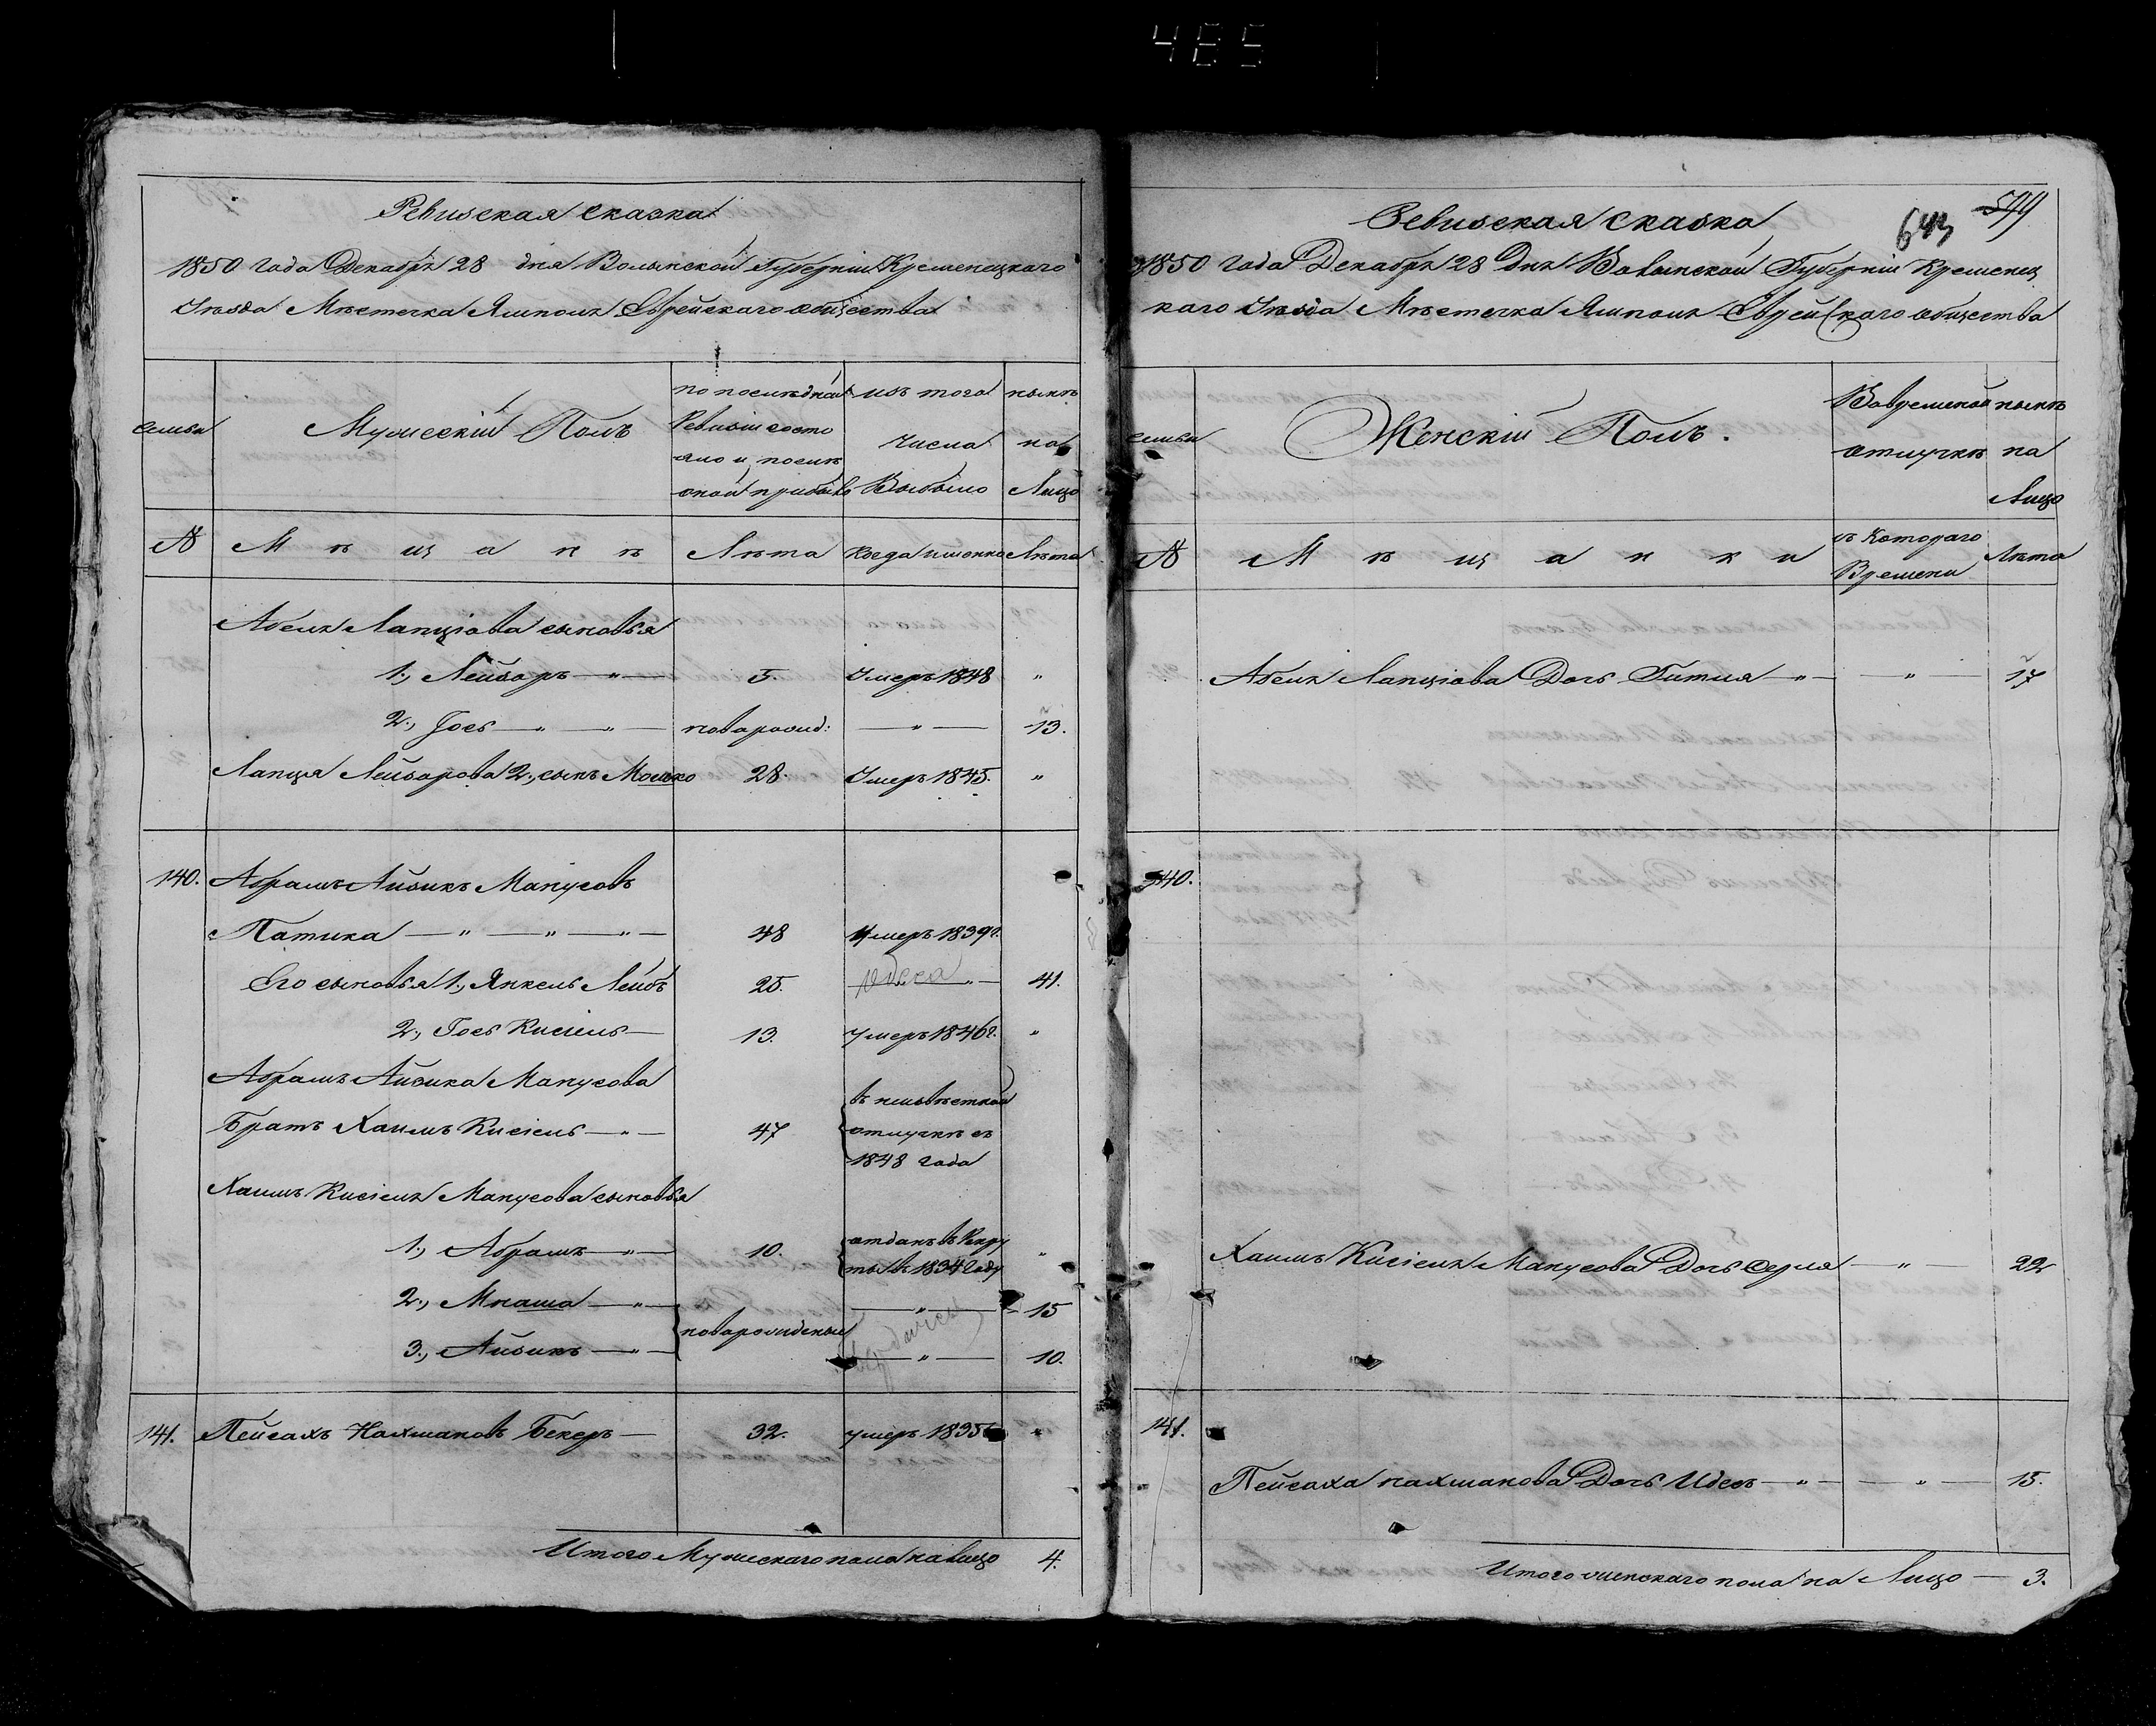 485
Ревизская сказка
1850 года Декабря 28 дня Волынской Губерніи Кременецкаго
Уѣзда Мѣстечка Ямполя Еврейскаго общества
семьи
Мужескій Полъ
по послѣдней
Ревизіи состо
яло и послѣ
оной прибыло
изъ того
числа
Выбыло
нынѣ
на
Лицо
№
Мѣщане
Лѣта
когда именно
Лѣта
Абеля Лапціова сыновья
1., Лейзоръ — " — 5. Умеръ 1848 "
2., Іось — " — " — новорожд: — " — 13.
Лапця Лейзорова 2., сынъ Мошко 28. Умеръ 1845. "
140. Абрамъ Айзикъ Манусовъ
Патика — " — " — " — 48 Умеръ 1839г.
Его сыновья 1., Янкель Лейбъ 25. — " — 41.
2., Іось Кисіель — 13. умеръ 1846г. "
Абрамъ Айзика Манусова
Братъ Хаимъ Кисіель — " — 47
в неизвѣстной
отлучкѣ съ
1848 года
Хаимъ Кисіеля Манусова сыновья
1., Абрамъ — " — 10.
отданъ въ Рекру
ты въ 1834 году
"
2., Мнаша — " — — " — 15
новорожденые
3., Айзикъ — " — — " — 10.
141. Пейсахъ Нахмановъ Бекеръ — 32. умеръ 1835 "
Итого Мужескаго пола на лицо 4.
643
599
Ревизская сказка
1850 года Декабря 28 Дня Волынской Губерніи Кременец
каго Уѣзда Мѣстечка Ямполя Еврейскаго общества
семьи
Женскій Полъ.
Во временой
отлучкѣ
нынѣ
на
Лицо
№
Мѣщанки
съ Котораго
Времени
Лѣта
Абеля Лапціова Дочь Гитля — " — — " — 17
140.
Хаимъ Кисіеля Манусова Дочь Серля — " — 22
141.
Пейсаха нахманова Дочь Идесъ — " — — " — 15.
Итого женскаго пола на Лицо — 3.